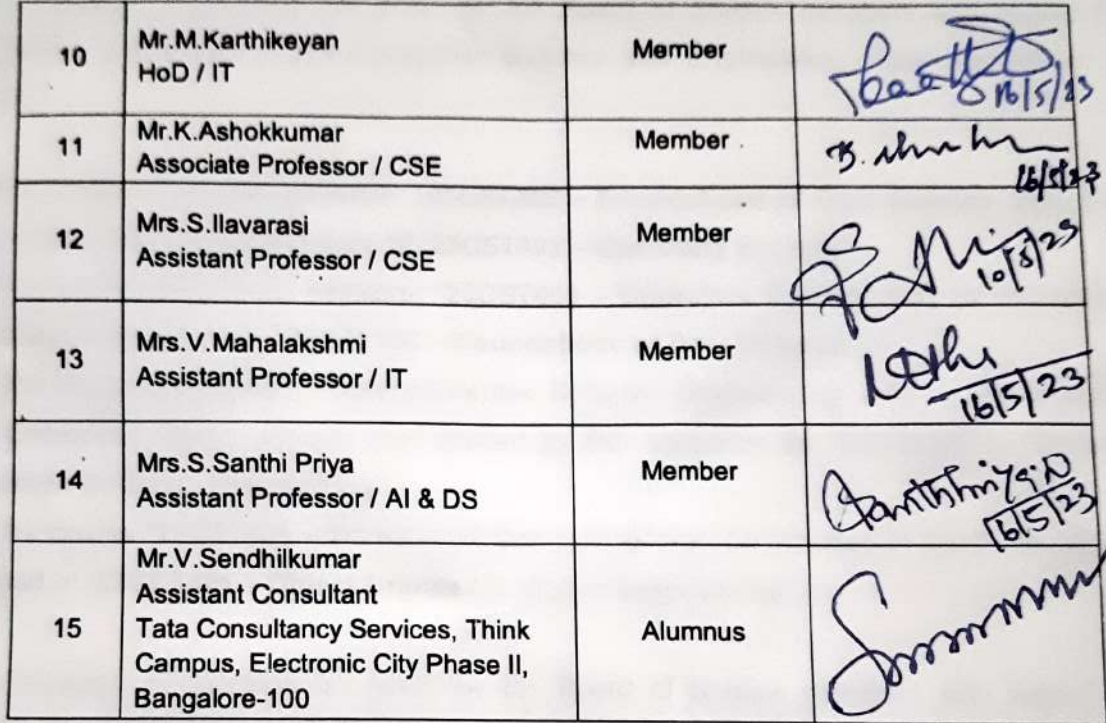 10
Mr.M.Karthikeyan
HoD / IT
Member
16/5/23
11
Mr.K.Ashokkumar
Associate Professor / CSE
Member
16/5/23
12
Mrs.S.Ilavarasi
Assistant Professor / CSE
Member
13
Mrs.V.Mahalakshmi
Assistant Professor / IT
Member
16/5/23
14
Mrs.S.Santhi Priya
Assistant Professor / AI & DS
Member
16/5/23
15
Mr.V.Sendhilkumar
Assistant Consultant
Tata Consultancy Services, Think
Campus, Electronic City Phase II,
Bangalore-100
Alumnus